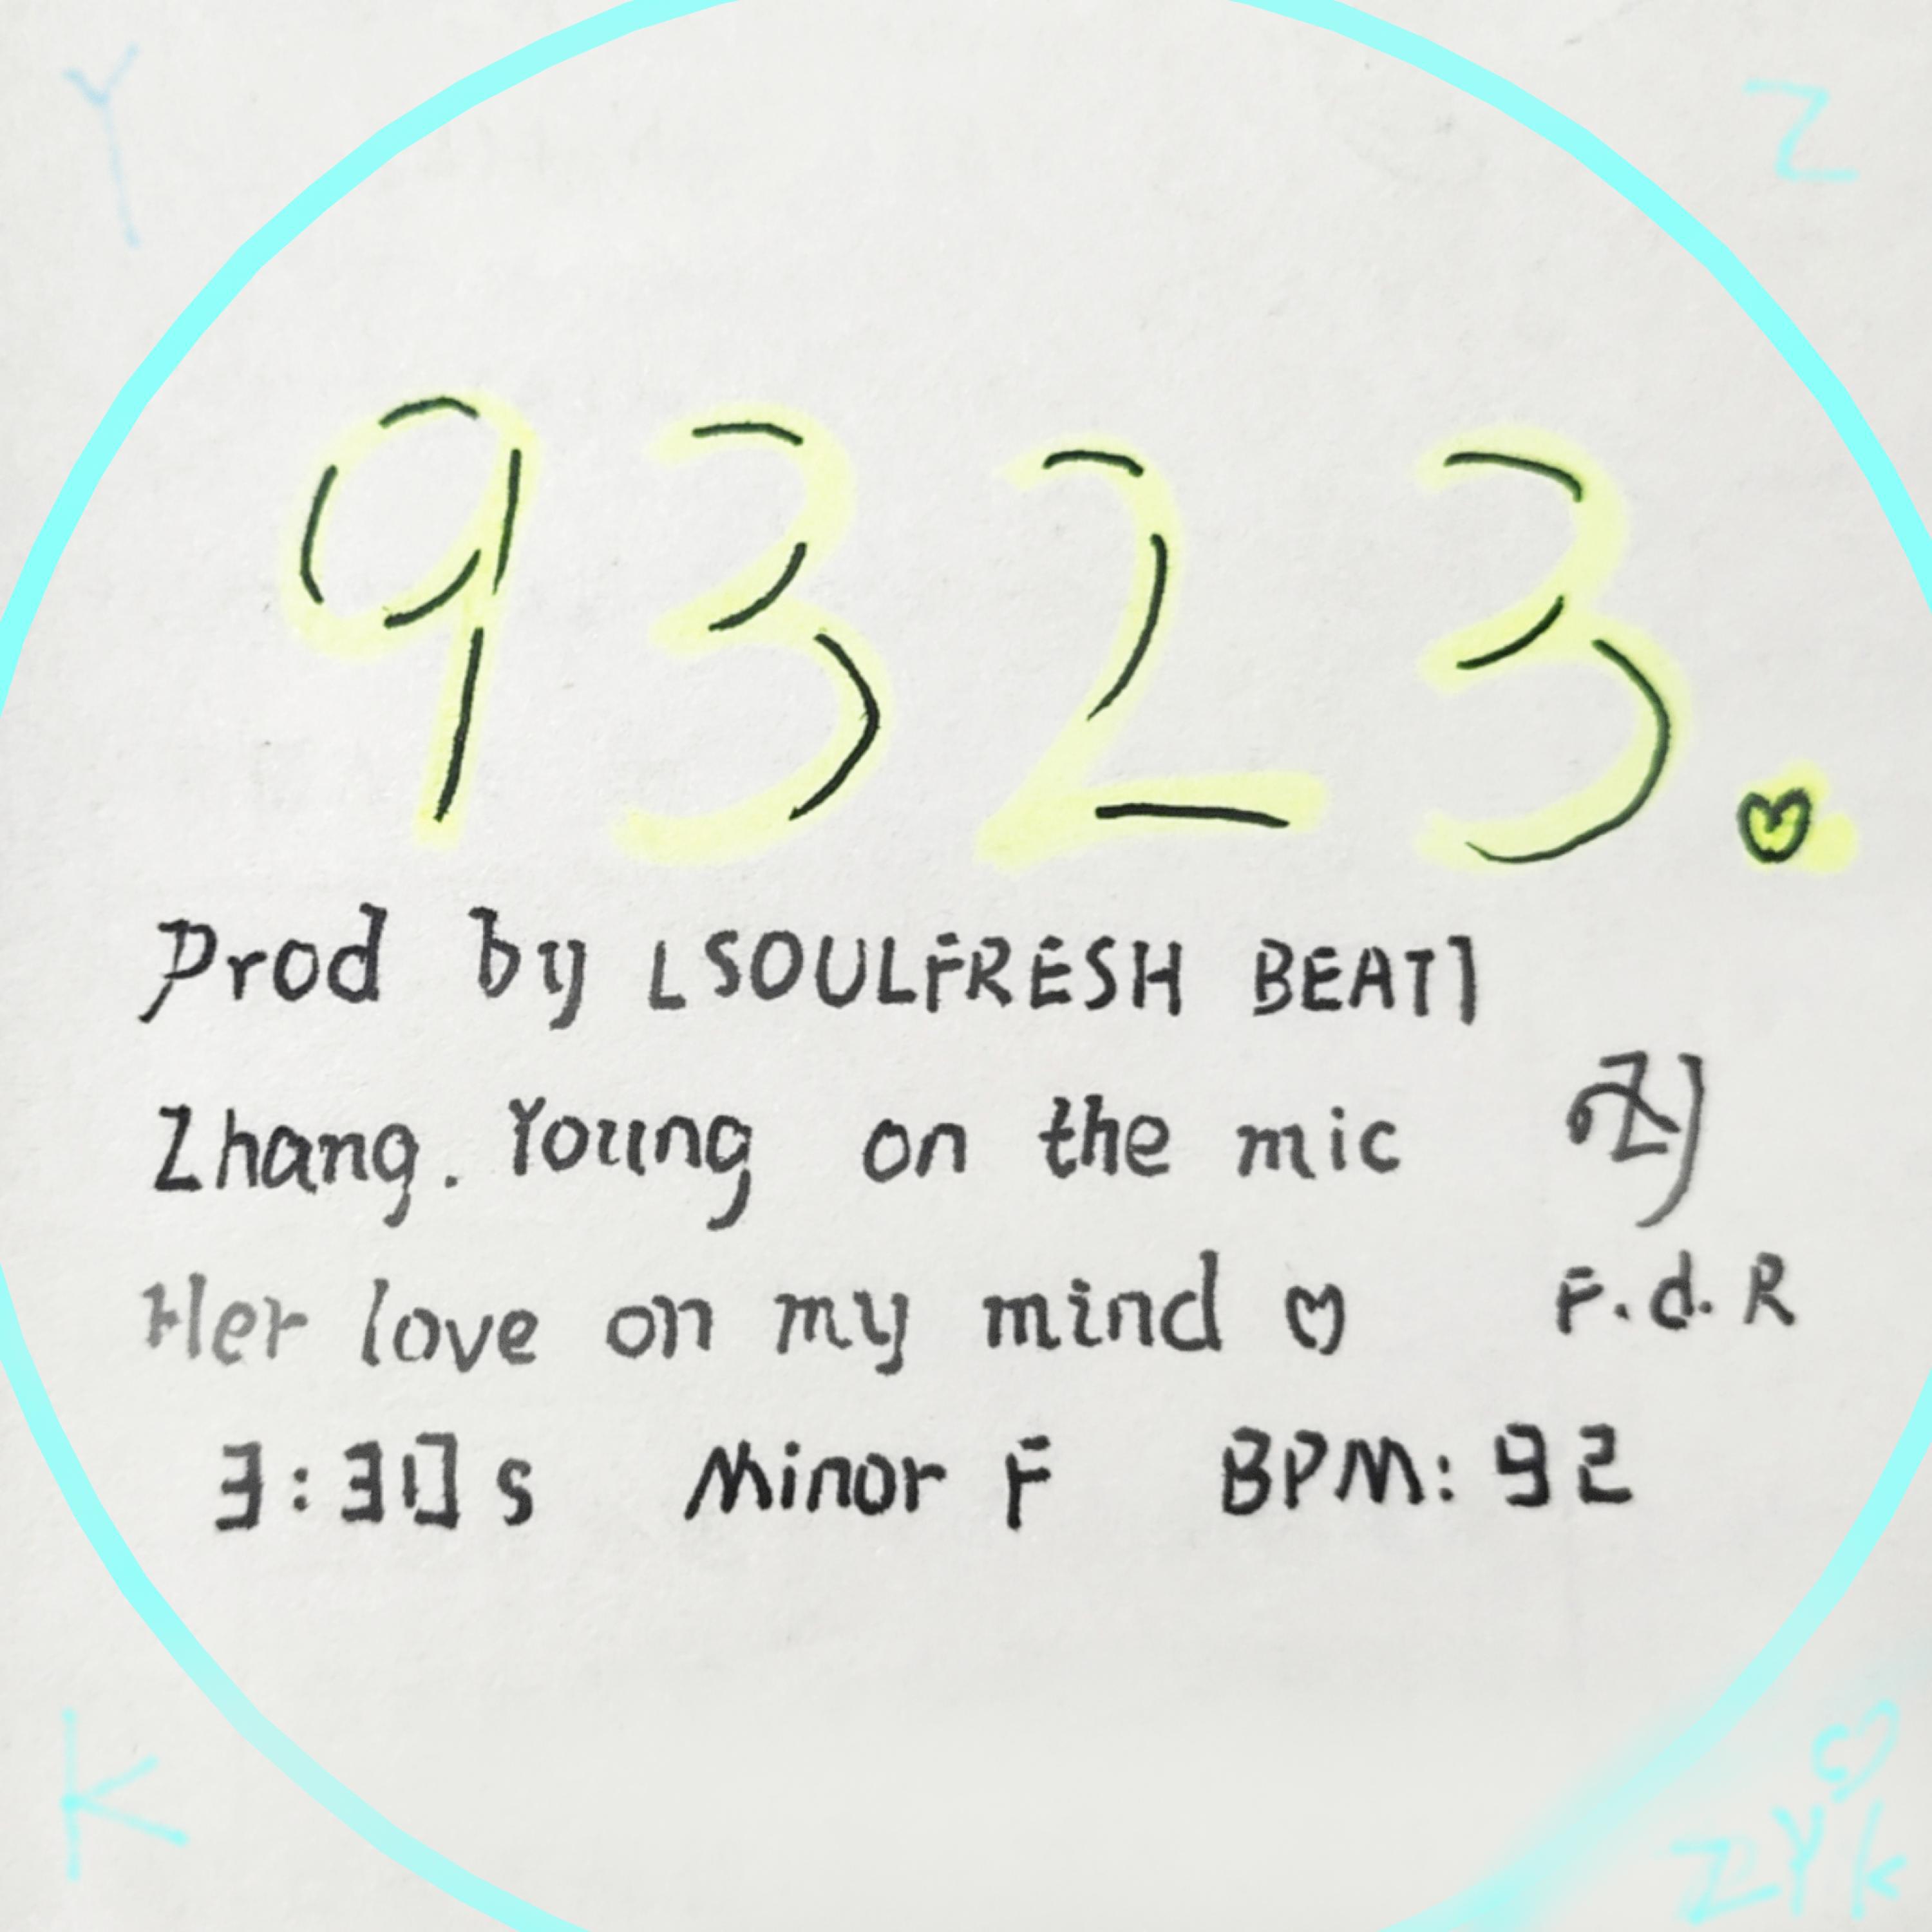 Y Z
9323.
Prod by [SOULFRESH BEAT]
Zhang. Young on the mic
Her love on my mind ♡ F.d.R
3:30s Minor F BPM: 92
K
ZYK